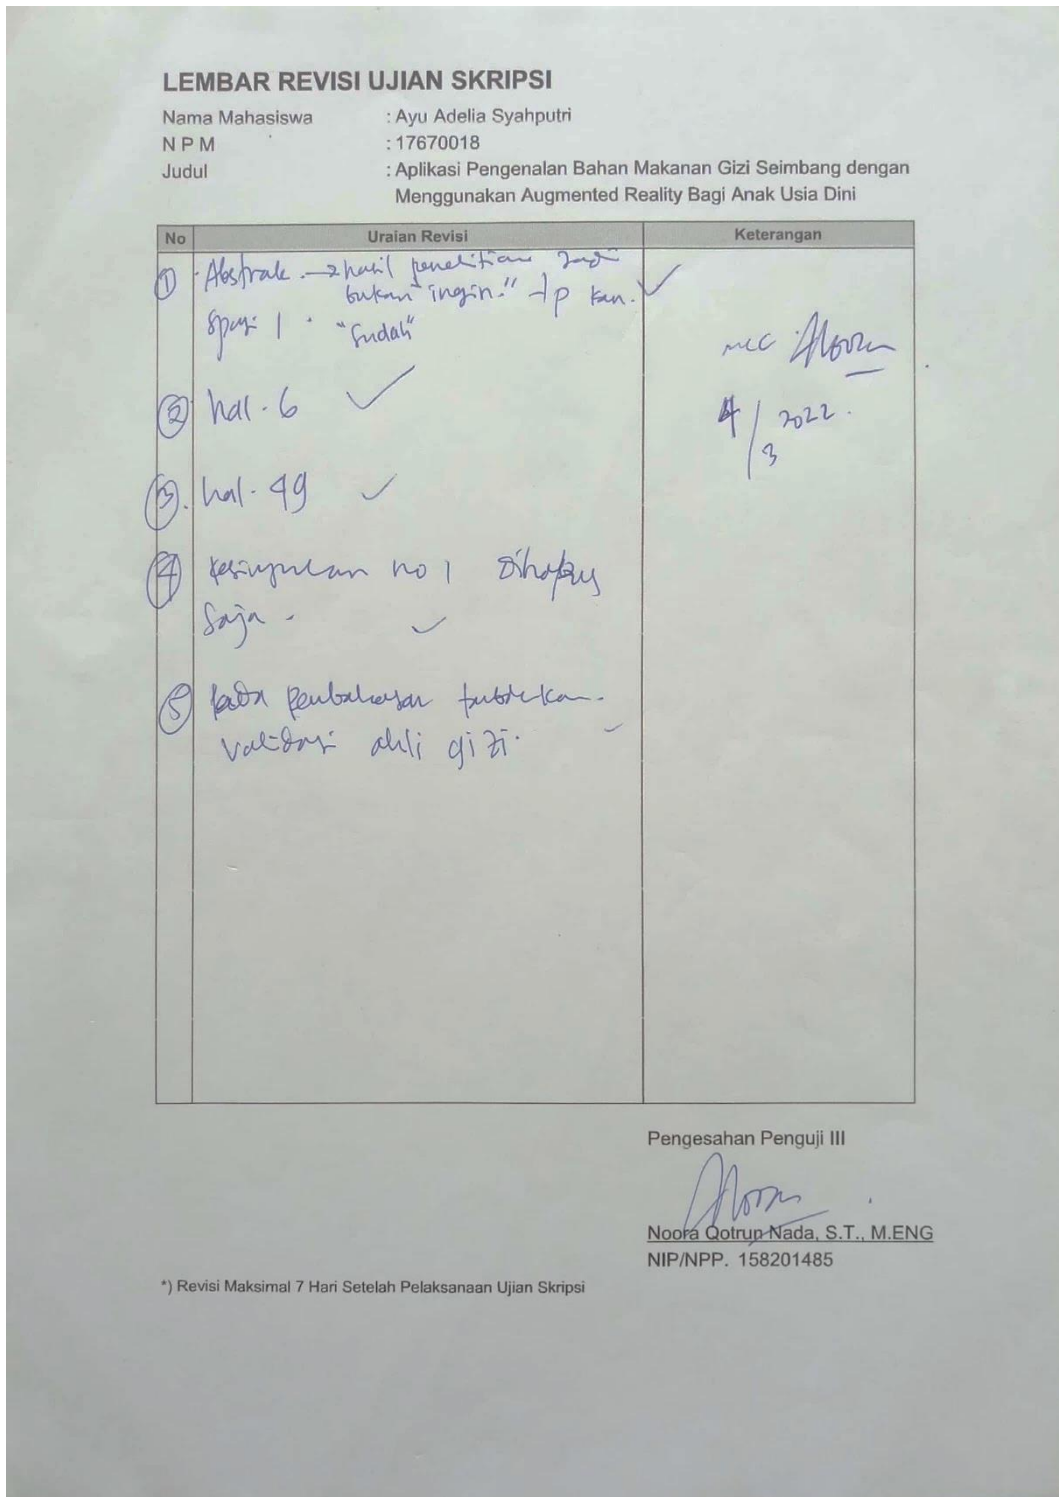 LEMBAR REVISI UJIAN SKRIPSI
Nama Mahasiswa : Ayu Adelia Syahputri
N P M : 17670018
Judul : Aplikasi Pengenalan Bahan Makanan Gizi Seimbang dengan
Menggunakan Augmented Reality Bagi Anak Usia Dini
No Uraian Revisi Keterangan
① Abstrak → hasil penelitian
bukan "ingin"
1 "sudah"
② hal. 6
4/3 2022.
③. hal. 49
④ kesimpulan no 1 dihapus
saja.
⑤ pada pembahasan
validasi ahli gizi.
Pengesahan Penguji III
Noora Qotrun Nada, S.T., M.ENG
NIP/NPP. 158201485
*) Revisi Maksimal 7 Hari Setelah Pelaksanaan Ujian Skripsi